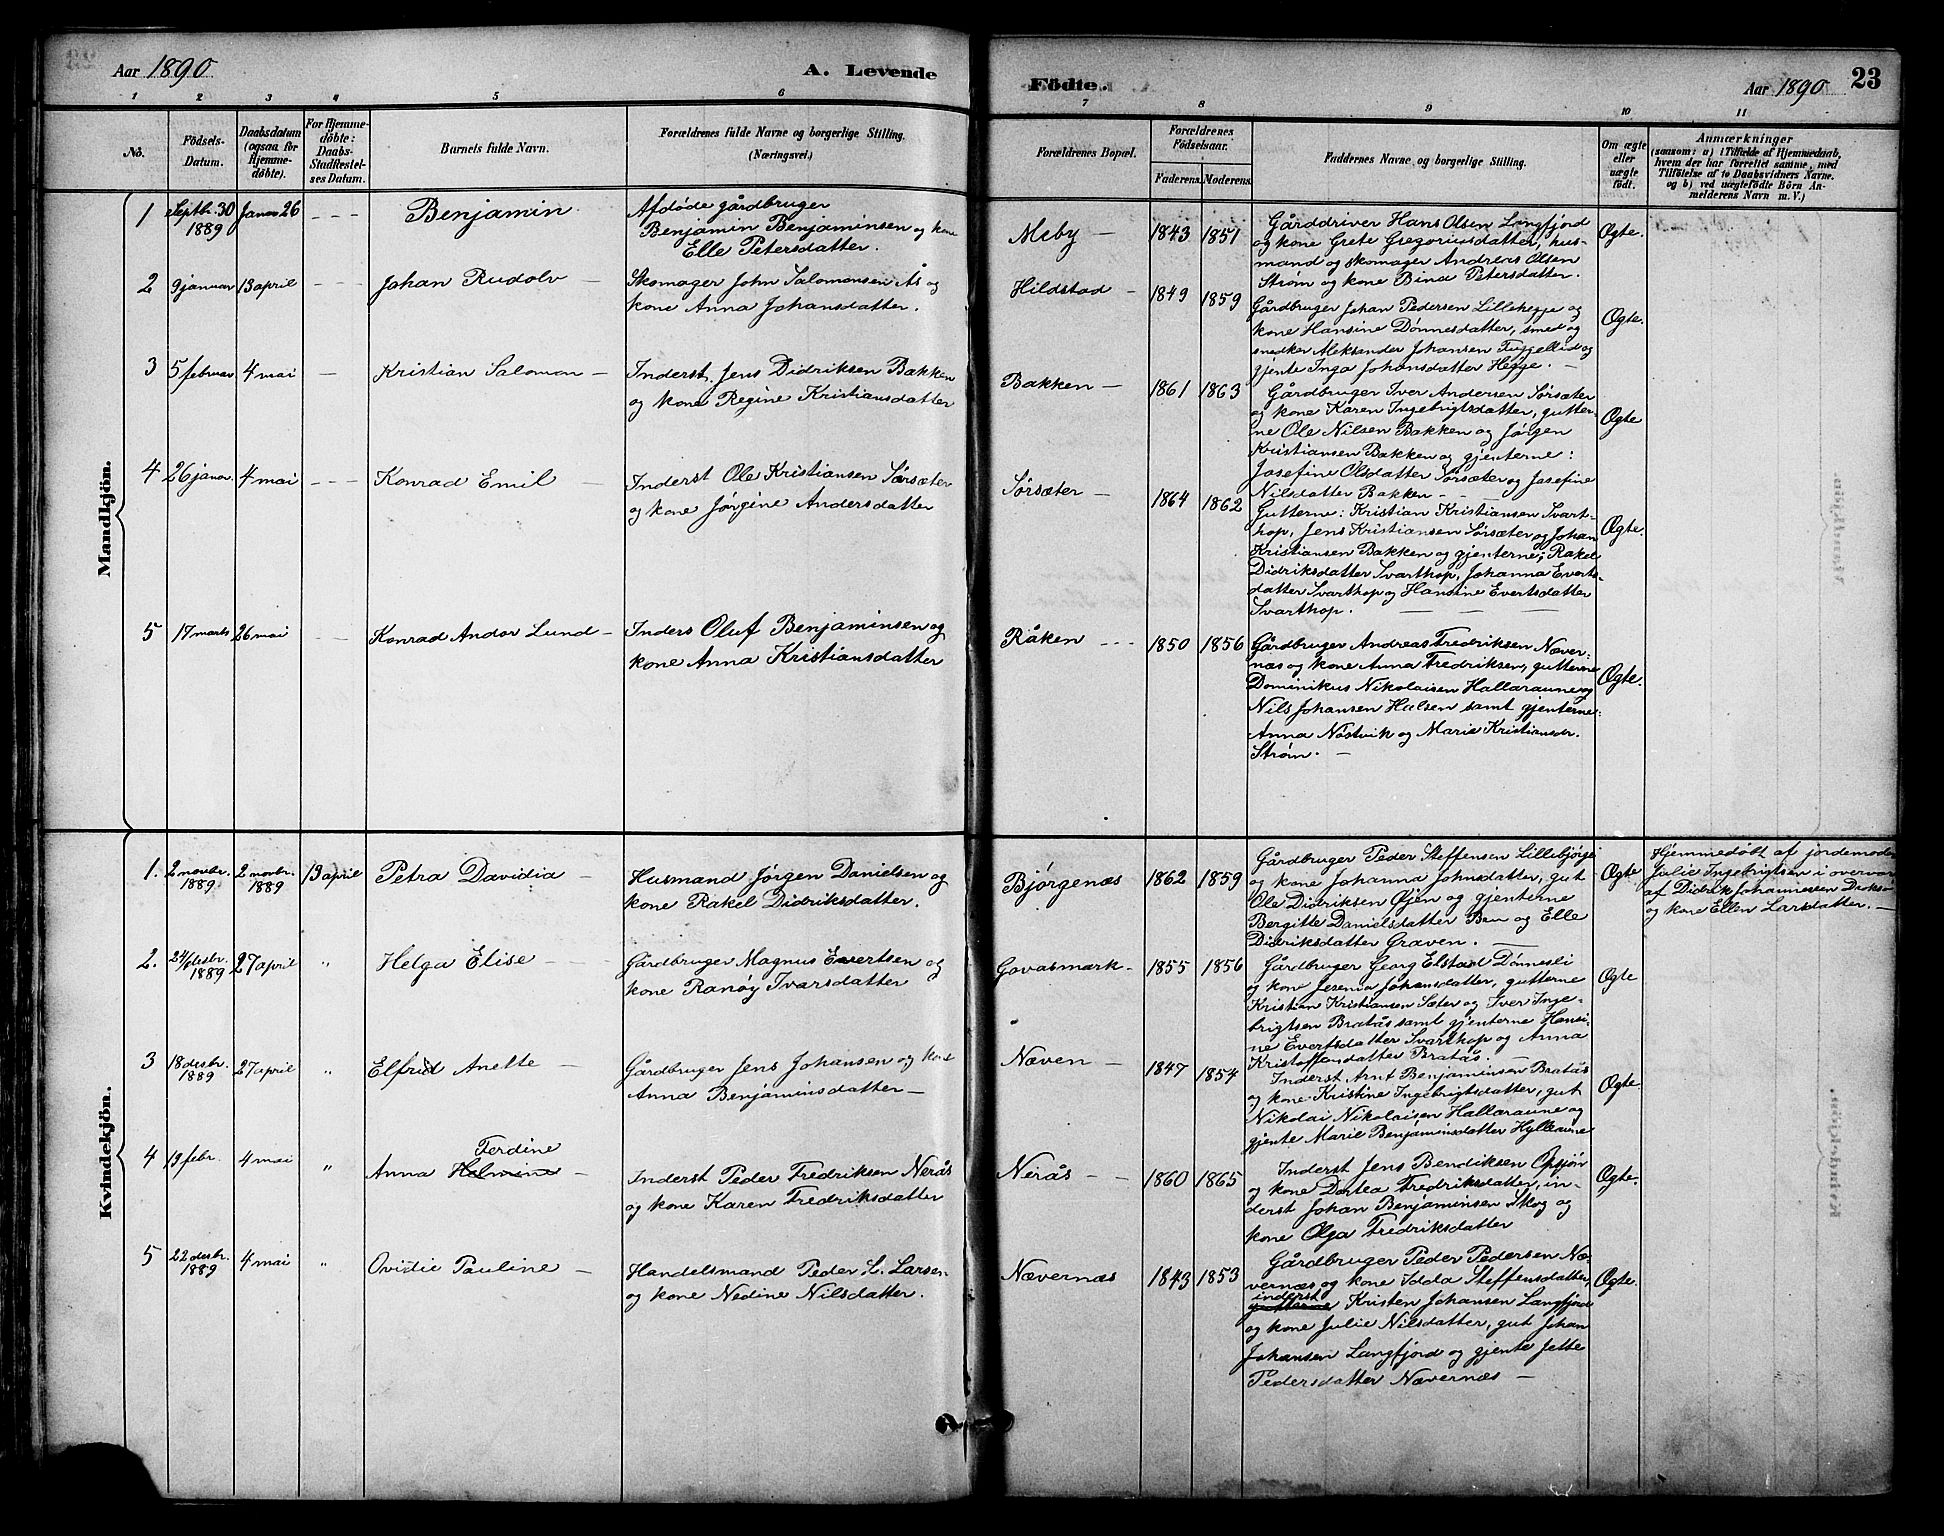 Aar 1890
A. Levende
Födte.
Aar 1890
23
1 2 3 4 5 6 7 8 9 10 11
No.
Födsels-
Datum.
Daabsdatum
(ogsaa for
Hjemme-
döbte).
For Hjemme-
döbte:
Daabs-
Stadfæstel-
ses Datum.
Barnets fulde Navn.
Forældrenes fulde Navne og borgerlige Stilling.
(Næringsvei.)
Forældrenes Bopæl.
Forældrenes
Födselsaar.
Faderens.
Moderens.
Faddernes Navne og borgerlige Stilling.
Om ægte
eller
uægte
födt.
Anmærkninger
(saasom: a) i Tilfælde af Hjemmedaab,
hvem der har forrettet samme, med
Tilföielse af to Daabsvidners Navne.
og b) ved uægtefödte Börn An-
melderens Navn m. V.)
Mandkjön.
1
Septbr. 30
1889
Januar 26
Benjamin
Afdøde gårdbruger
Benjamin Benjaminsen og kone
Elle Petersdatter.
Meby —
1843
1851
Gårddriver Hans Olsen Langfjord
og kone Grete Gregoriusdatter, hus-
mand og skomager Andreas Olsen
Strøm og kone Bina Petersdatter.
Ægte.
2
9 januar
13 april
Johan Rudolv —
Skomager John Salomonsen Ås og
kone Anna Johansdatter.
Hildstad —
1849
1859
Gårdbruger Johan Pedersen Lillehegje og
kone Hansine Dønnesdatter, smed og
snedker Aleksander Johansen og
gjente Inga Johansdatter Hegje. —
Ægte.
3
5 februar
4 mai
Kristian Salomon —
Inderst. Jens Didriksen Bakken
og kone Regine Kristiansdatter
Bakken —
1861
1863
Gårdbruger Iver Andersen Sørsæter
og kone Karen Ingebrigtsdatter, gutter-
ne Ole Nilsen Bakken og Jørgen
Kristiansen Bakken og gjenterne:
Josefine Olsdatter Sørsæter og Josefine
Nilsdatter Bakken —
Ægte
4
26 januar.
4 mai
Konrad Emil —
Inderst Ole Kristiansen Sørsæter
og kone Jørgine Andersdatter
Sørsæter —
1864
1862
Gutterne: Kristian Kristiansen Svart-
hop, Jens Kristiansen Sørsæter og Johan
Kristiansen Bakken og gjenterne; Rakel
Didriksdatter Svarthop, Johanna Everts-
datter Svarthop og Hansine Evertsdatter
Svarthop. —
Ægte.
5
17 marts
26 mai
Konrad Andor Lund —
Inders Oluf Benjaminsen og
kone Anna Kristiansdatter
Råken
1850
1856
Gårdbruger Andreas Fredriksen Næver-
næs og kone Anna Fredriksen, gutterne
Dominikus Nikolaisen Hallaraune og
Nils Johansen Halsen samt gjenterne:
Anna Nøstvik og Marie Kristiansdr.
Strøm. —
Ægte.
Kvindekjön.
1.
2 novbr.
1889
2 novbr.
1889
13 april
Petra Davidia —
Husmand Jørgen Danielsen og
kone Rakel Didriksdatter.
Bjørgenæs
1862
1859
Gårdbruger Peder Steffensen Lillebjørge
og kone Johanna Johnsdatter, gut
Ole Didriksen Øjen og gjenterne
Bergitte Danielsdatter Bru og Elle
Didriksdatter Graven. —
Ægte
Hjemmedøbt af jordemoder
Julie Ingebrigtsen i overvær
af Didrik Johannessen
og kone Ellen Larsdatter. —
2.
24/desbr.
1889
27 april
"
Helga Elise —
Gårdbruger Magnus Evertsen og
kone Ranøy Ivarsdatter
Govasmark-
1855
1856
Gårdbruger Georg Elstad Dønnesli
og kone Jesema Johansdatter, gutterne
Kristian Kristiansen Sæter og Iver Inge-
brigtsen Bratås samt gjenterne Hansi-
ne Evertsdatter Svarthop og Anna
Kristoffersdatter Bratås. —
Ægte
3
18 desbr.
1889
27 april
"
Elfrid Anette —
Gårdbruger Jens Johansen og kone
Anna Benjaminsdatter —
Næven —
1847
1854
Inderst Arnt Benjaminsen Bratås
og kone Kristine Ingebrigtsdatter, gut
Nikolai Nikolaisen Hallaraune og
gjente Marie Benjaminsdatter Hylleraune
Ægte.
4
19 febr.
4 mai
"
Ferdine
Anna Helmine —
Inderst Peder Fredriksen Nerås
og kone Karen Fredriksdatter
Nerås —
1860
1865
Inderst Jens Bendiksen Opsjøn
og kone Dortea Fredriksdatter, in-
derst Johan Benjaminsen Skog og
kone Olga Fredriksdatter
Ægte.
5
22 desbr.
1889
4 mai
"
Ovidie Pauline —
Handelsmand Peder L. Larsen
og kone Nedine Nilsdatter.
Nævernæs
1843
1853
Gårdbruger Peder Pedersen Næ-
vernæs og kone Idda Steffensdatter,
inderst
gutterne Kristen Johansen Langfjord
og kone Julie Nilsdatter, gut Johan
Johansen Langfjord og gjente Jette
Pedersdatter Nævernæs —
Ægte.